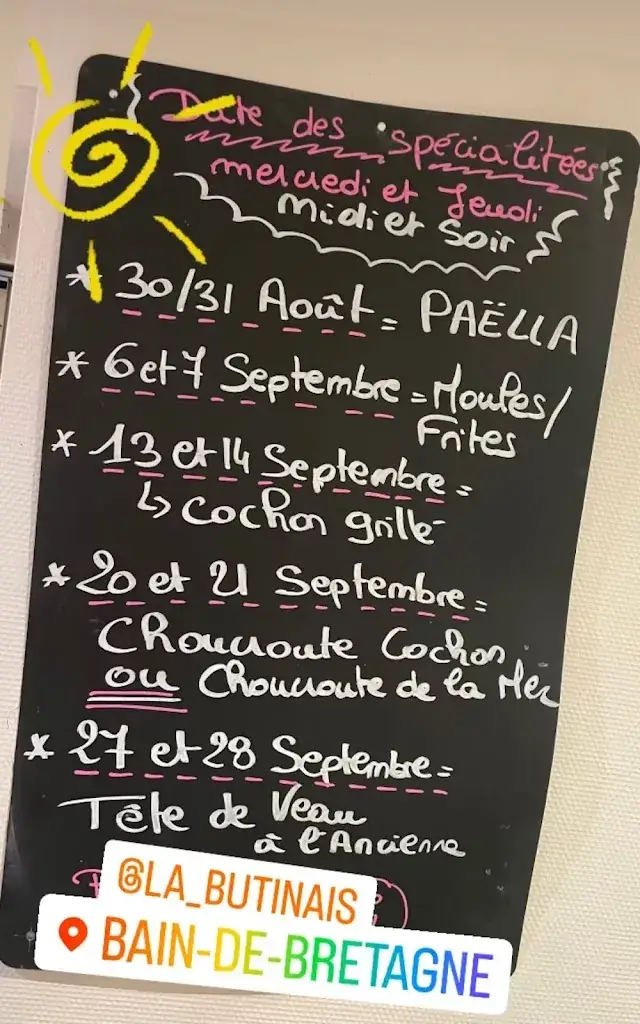 Date des spécialitées
mercredi et Jeudi
Midi et Soir
* 30/31 Août = PAËLLA
* 6 et 7 Septembre = Moules/
Frites
* 13 et 14 Septembre =
↳ Cochon grillé
* 20 et 21 Septembre =
Choucroute Cochon
ou Choucroute de la Mer
* 27 et 28 Septembre =
Tête de Veau
à l'Ancienne
@LA_BUTINAIS
BAIN-DE-BRETAGNE